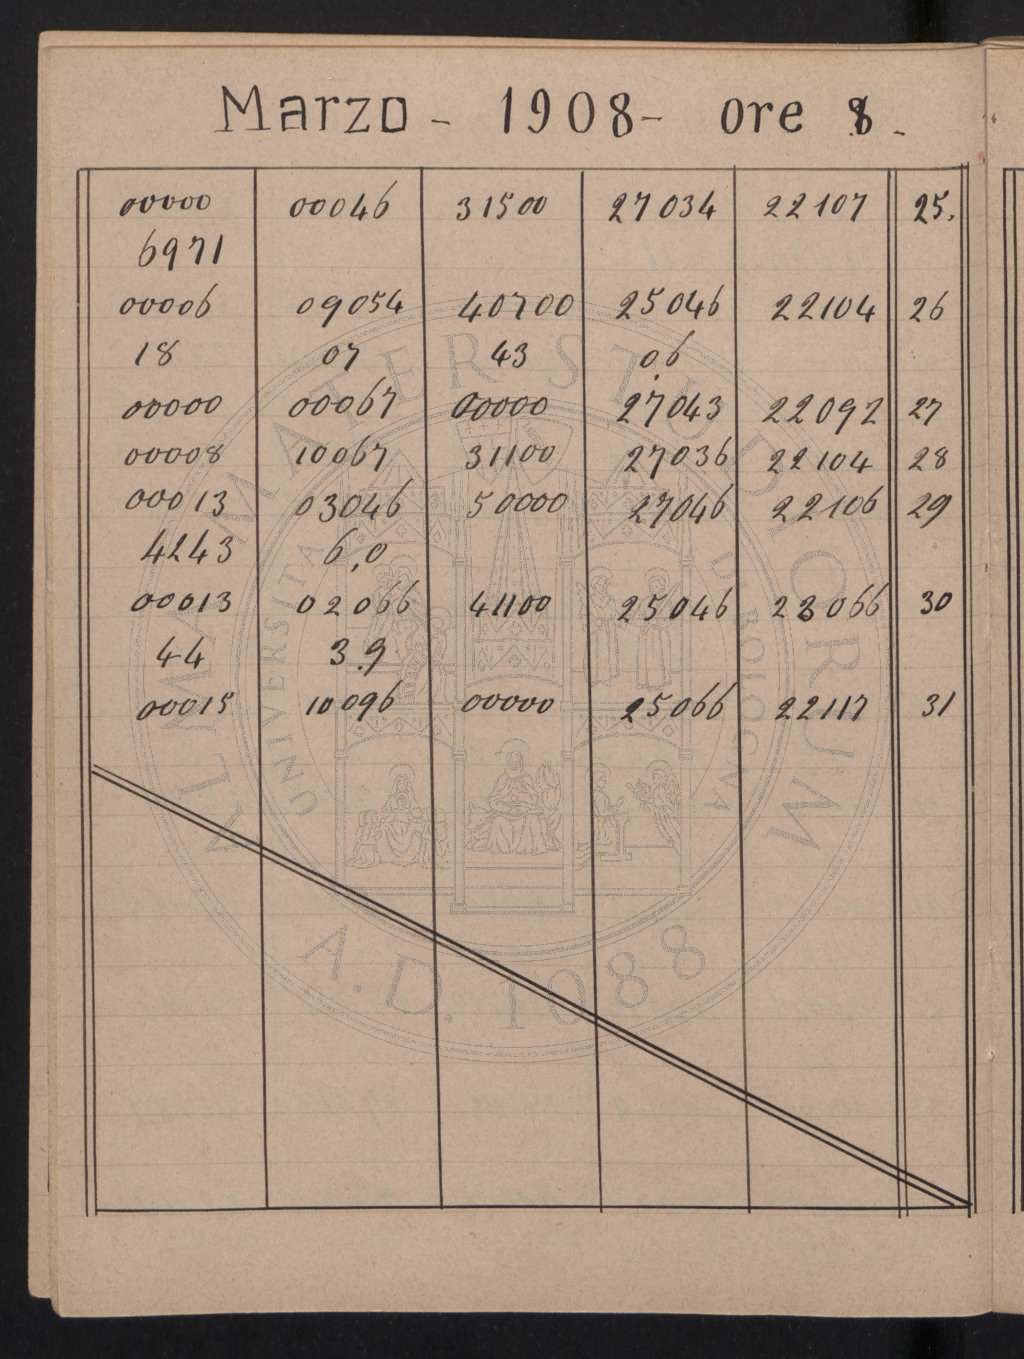 Marzo - 1908 - ore 8.
00000 00046 31500 27034 22107 25.
6971
00006 09054 40700 25046 22104 26
18 07 43 0.6
00000 00067 00000 27043 22092 27
00008 10067 31100 27036 22104 28
00013 03046 50000 27046 22106 29
4243 6.0
00013 02066 41100 25046 23066 30
44 3.9
00015 10096 00000 25066 22117 31
ALMA MATER STUDIORUM
UNIVERSITÀ DI BOLOGNA
A.D. 1088